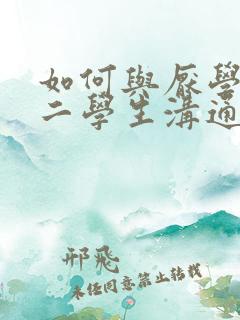 如何與厭學
二學生溝通
邢飛
未經同意禁止轉載